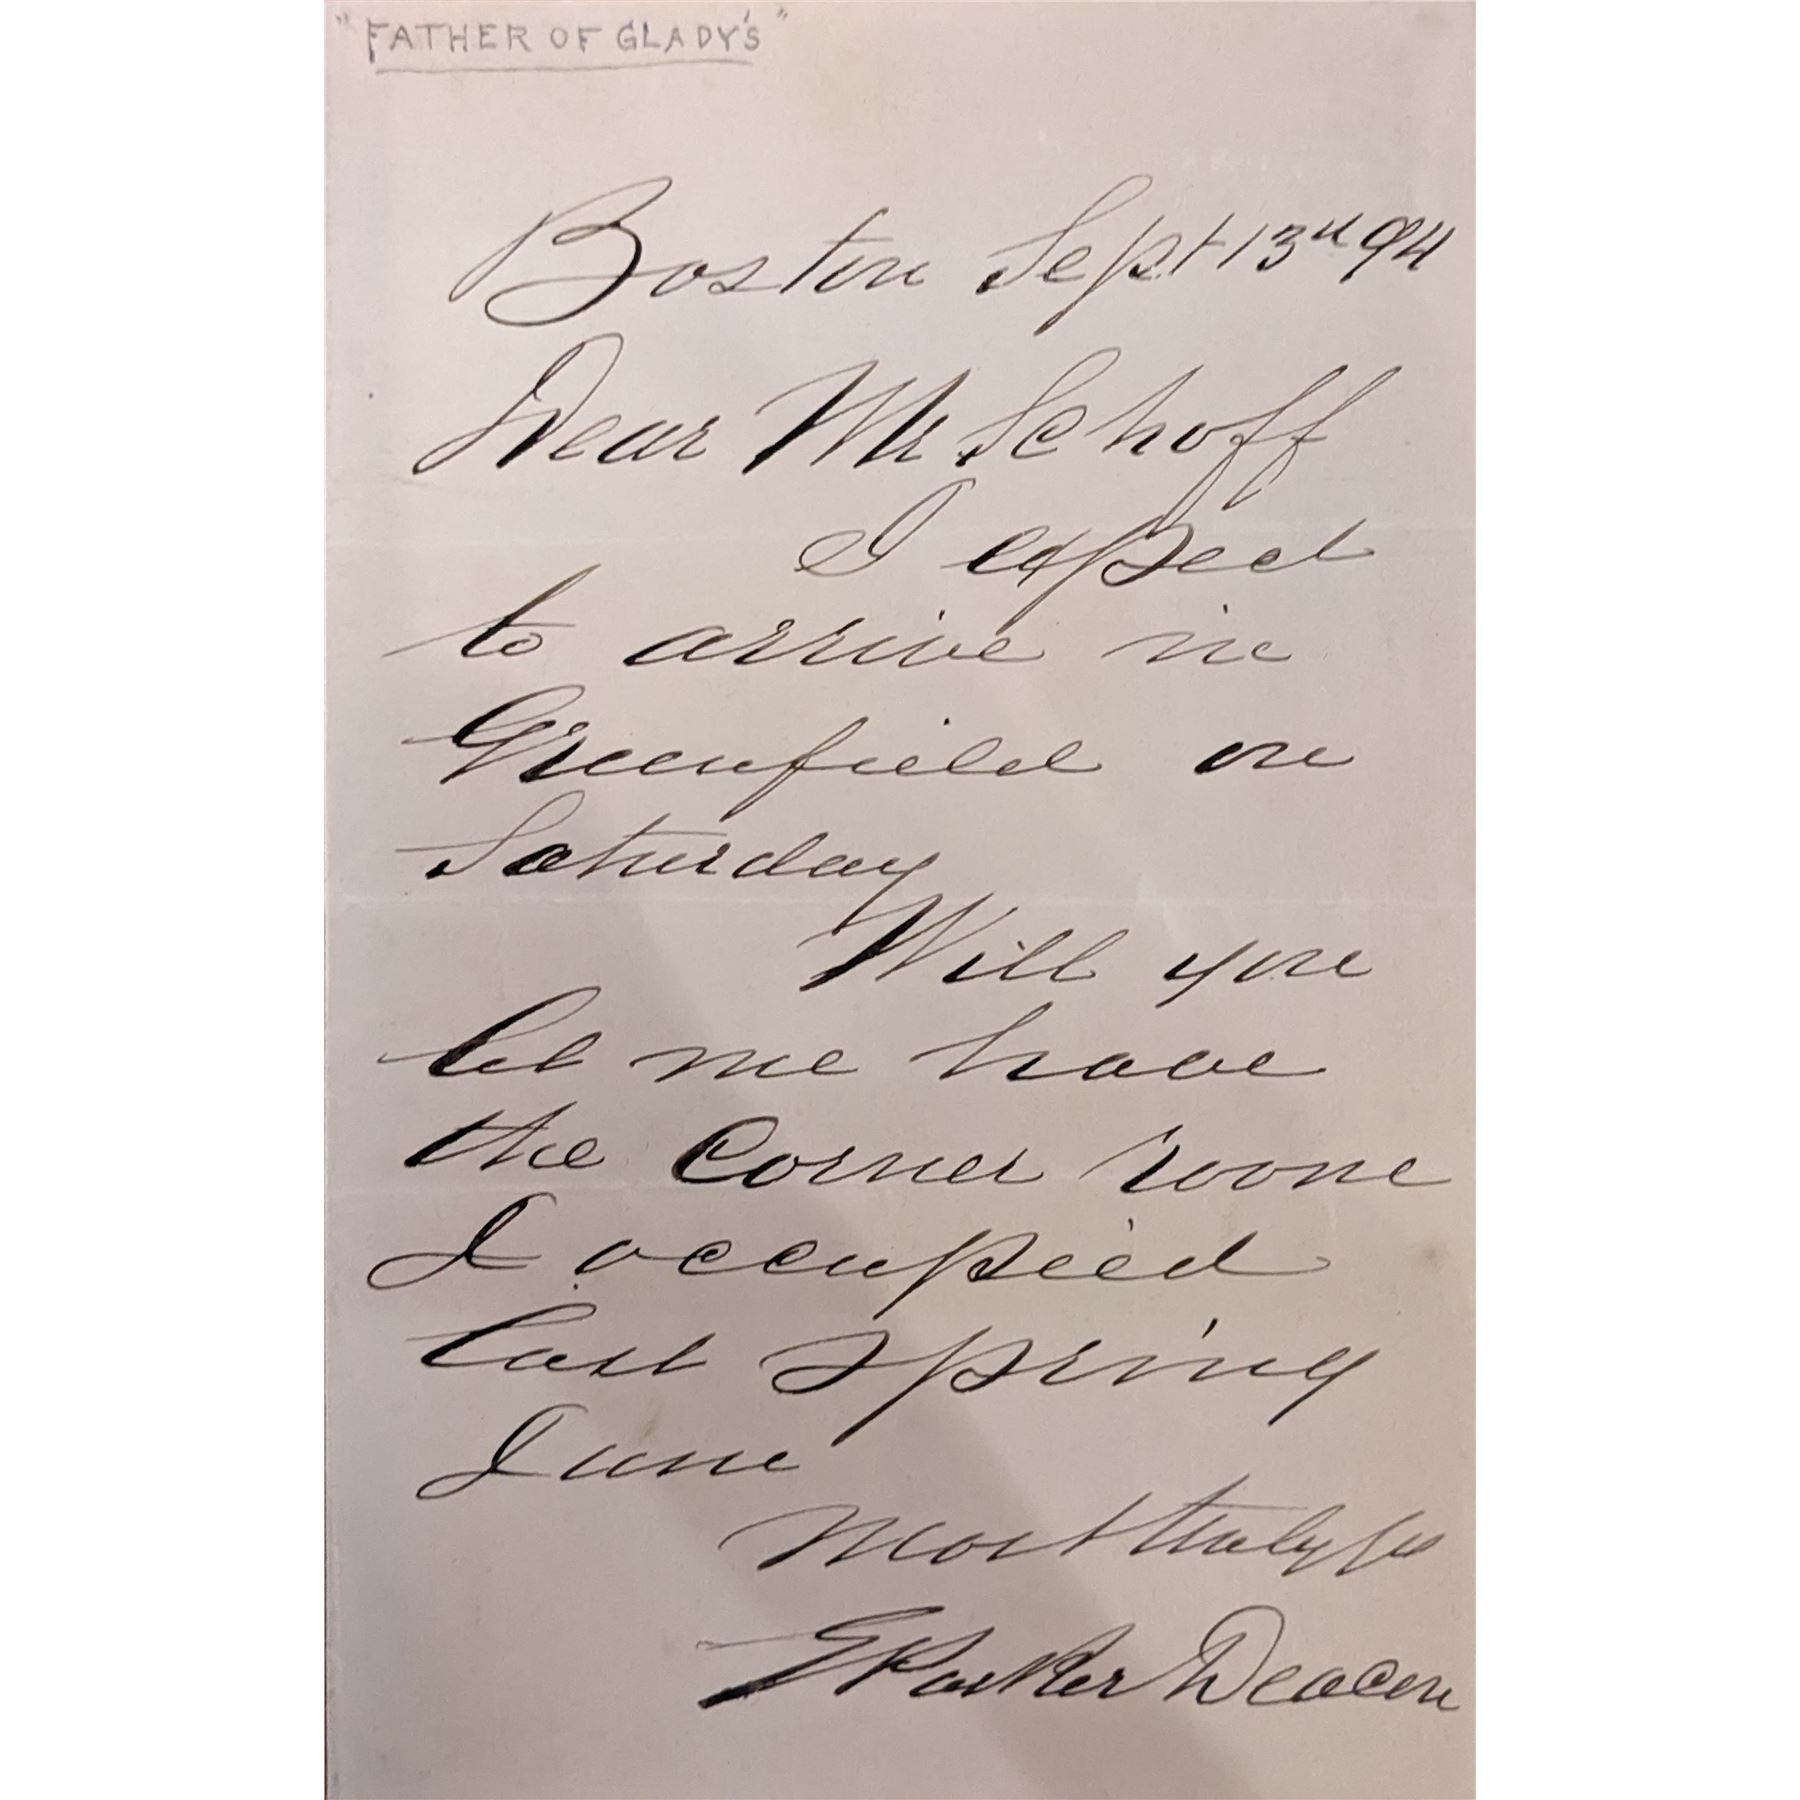 "FATHER OF GLADY'S"
Boston Sept 13th 94
Dear Mr Schoff
I expect
to arrive in
Greenfield on
Saturday
Will you
let me have
the Corner room
I occupied
last spring
June
Most truly yrs
E Parker Deacon